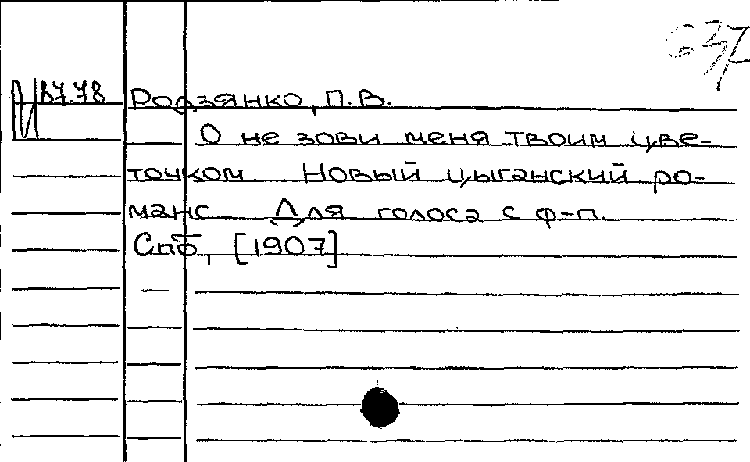 637
И 87.78 Родзянко, П.В.
О не зови меня твоим цве-
точком Новый цыганский ро-
манс Для голоса с ф-п.
Спб, [1907]